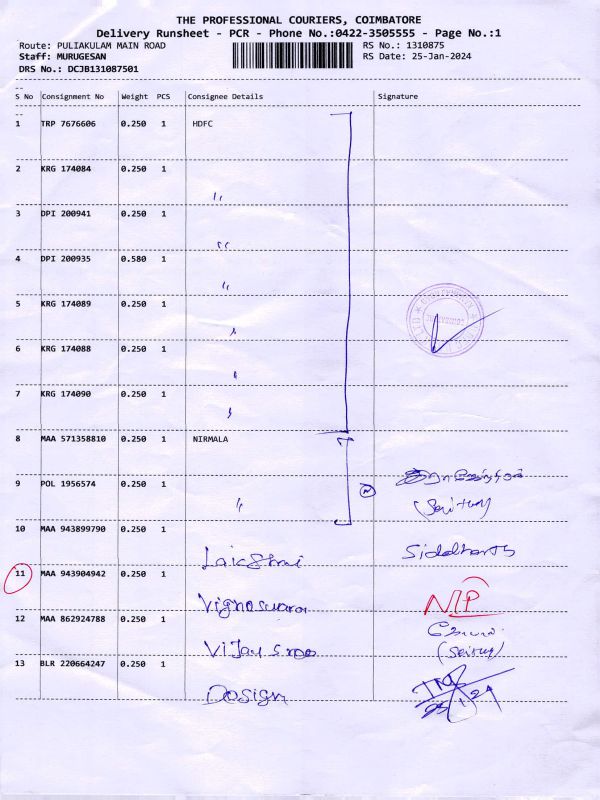 THE PROFESSIONAL COURIERS, COIMBATORE
Delivery Runsheet - PCR - Phone No.:0422-3505555 - Page No.:1
Route: PULIAKULAM MAIN ROAD RS No.: 1310875
Staff: MURUGESAN RS Date: 25-Jan-2024
DRS No.: DCJB131087501
S No Consignment No Weight PCS Consignee Details Signature
1 TRP 7676606 0.250 1 HDFC
2 KRG 174084 0.250 1 "
3 DPI 200941 0.250 1 "
4 DPI 200935 0.580 1 "
5 KRG 174089 0.250 1 "
6 KRG 174088 0.250 1 "
7 KRG 174090 0.250 1 "
8 MAA 571358810 0.250 1 NIRMALA
9 POL 1956574 0.250 1 "
10 MAA 943899790 0.250 1 Lakshmi Siddharth
11 MAA 943904942 0.250 1 Vignoswara NIP
12 MAA 862924788 0.250 1 Vijay
13 BLR 220664247 0.250 1 Design